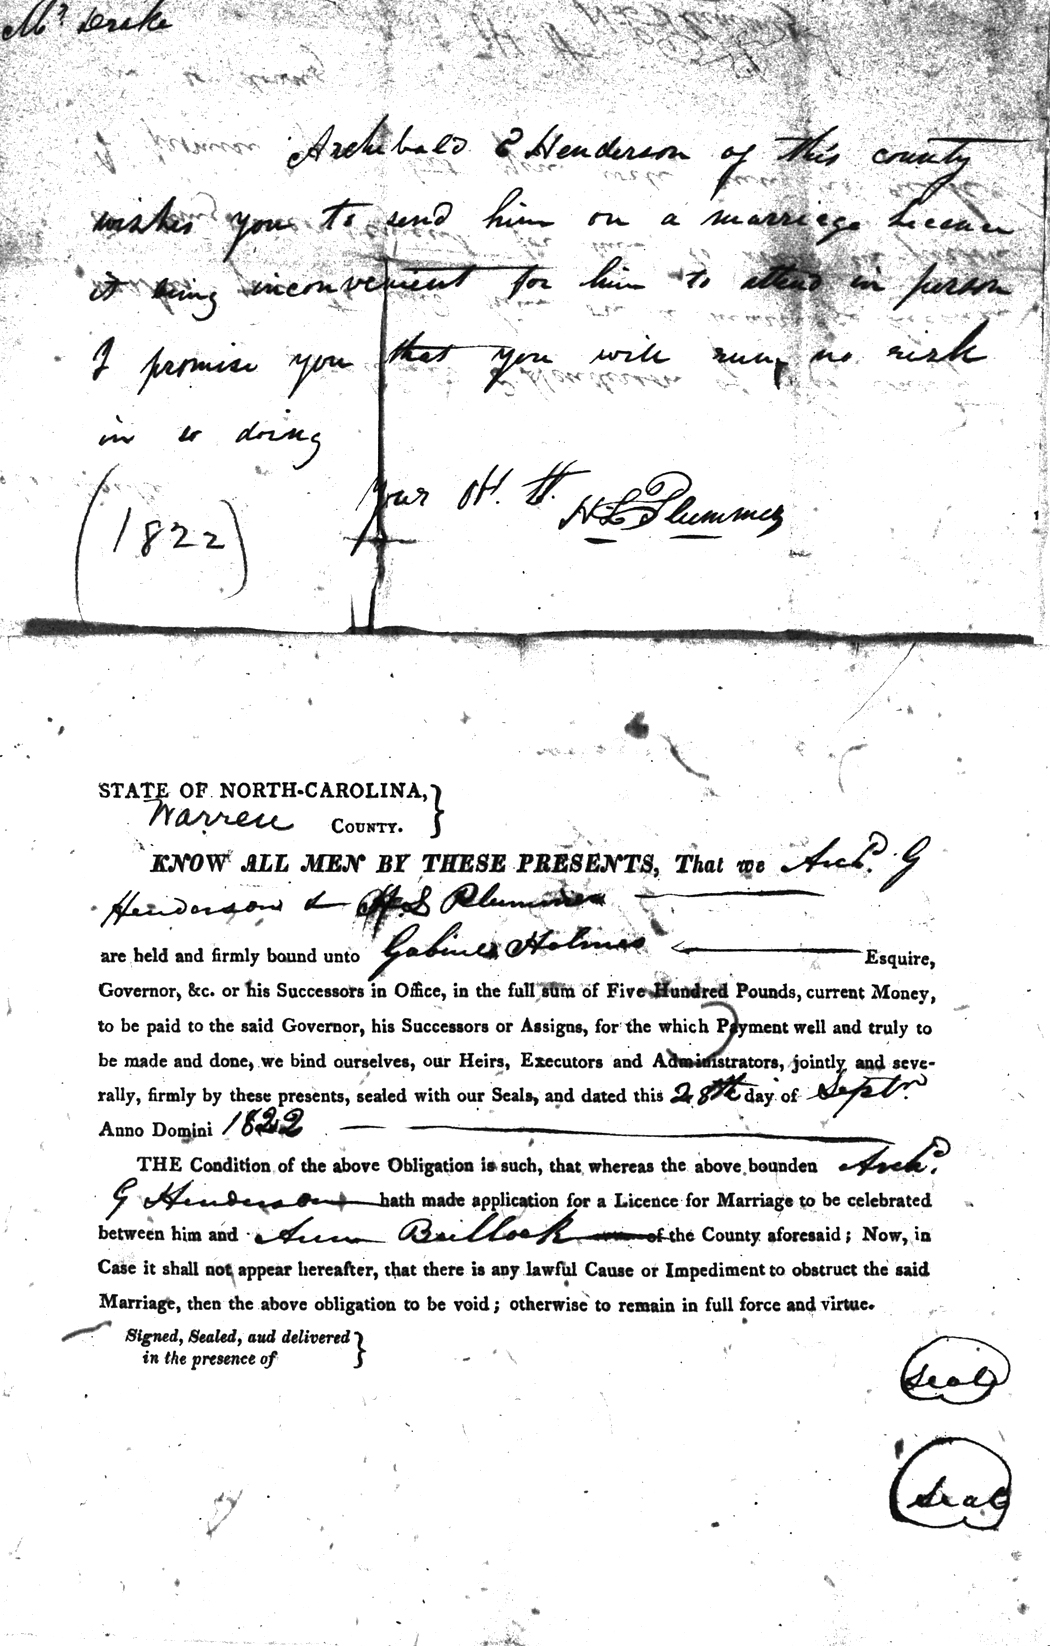 Mr Drake
Archibald E Henderson of this county
wishes you to send him on a marriage Licence
it being inconvenient for him to attend in person
I promise you that you will run no risk
in so doing
Your Ob. St.
H L Plummer
(1822)
STATE OF NORTH-CAROLINA, }
Warren COUNTY.
KNOW ALL MEN BY THESE PRESENTS, That we Archd. G
Henderson & H L Plummer
are held and firmly bound unto Gabriel Holmes Esquire,
Governor, &c. or his Successors in Office, in the full sum of Five Hundred Pounds, current Money,
to be paid to the said Governor, his Successors or Assigns, for the which Payment well and truly to
be made and done, we bind ourselves, our Heirs, Executors and Administrators, jointly and seve-
rally, firmly by these presents, sealed with our Seals, and dated this 28th day of Septr.
Anno Domini 1822
THE Condition of the above Obligation is such, that whereas the above bounden Archd.
G Henderson hath made application for a Licence for Marriage to be celebrated
between him and Ann Bullock of the County aforesaid; Now, in
Case it shall not appear hereafter, that there is any lawful Cause or Impediment to obstruct the said
Marriage, then the above obligation to be void; otherwise to remain in full force and virtue.
Signed, Sealed, aud delivered }
in the presence of
Seal
Seal